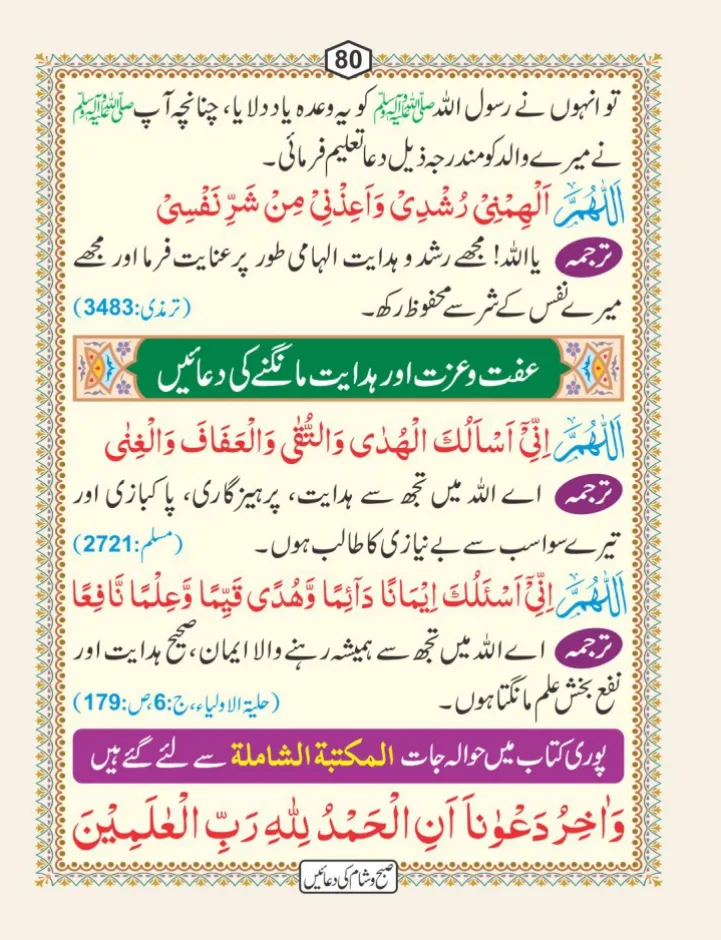 80
تو انہوں نے رسول اللہ ﷺ کو یہ وعدہ یاد دلایا، چنانچہ آپ ﷺ
نے میرے والد کو مندرجہ ذیل دعا تعلیم فرمائی۔
اَللّٰهُمَّ اَلْهِمْنِیْ رُشْدِیْ وَاَعِذْنِیْ مِنْ شَرِّ نَفْسِیْ
ترجمہ یا اللہ! مجھے رشد و ہدایت الہامی طور پر عنایت فرما اور مجھے
میرے نفس کے شر سے محفوظ رکھ۔ (ترمذی:3483)
عفت و عزت اور ہدایت مانگنے کی دعائیں
اَللّٰهُمَّ اِنِّیْٓ اَسْاَلُكَ الْهُدٰی وَالتُّقٰی وَالْعَفَافَ وَالْغِنٰی
ترجمہ اے اللہ میں تجھ سے ہدایت، پرہیزگاری، پاکبازی اور
تیرے سوا سب سے بے نیازی کا طالب ہوں۔ (مسلم:2721)
اَللّٰهُمَّ اِنِّیْٓ اَسْئَلُكَ اِیْمَانًا دَآئِمًا وَّهُدًی قَیِّمًا وَّعِلْمًا نَّافِعًا
ترجمہ اے اللہ میں تجھ سے ہمیشہ رہنے والا ایمان، صحیح ہدایت اور
نفع بخش علم مانگتا ہوں۔ (حلیۃ الاولیاء، ج:6، ص:179)
پوری کتاب میں حوالہ جات المكتبة الشاملة سے لئے گئے ہیں
وَاٰخِرُ دَعْوٰنَا اَنِ الْحَمْدُ لِلّٰهِ رَبِّ الْعٰلَمِیْنَ
صبح و شام کی دعائیں